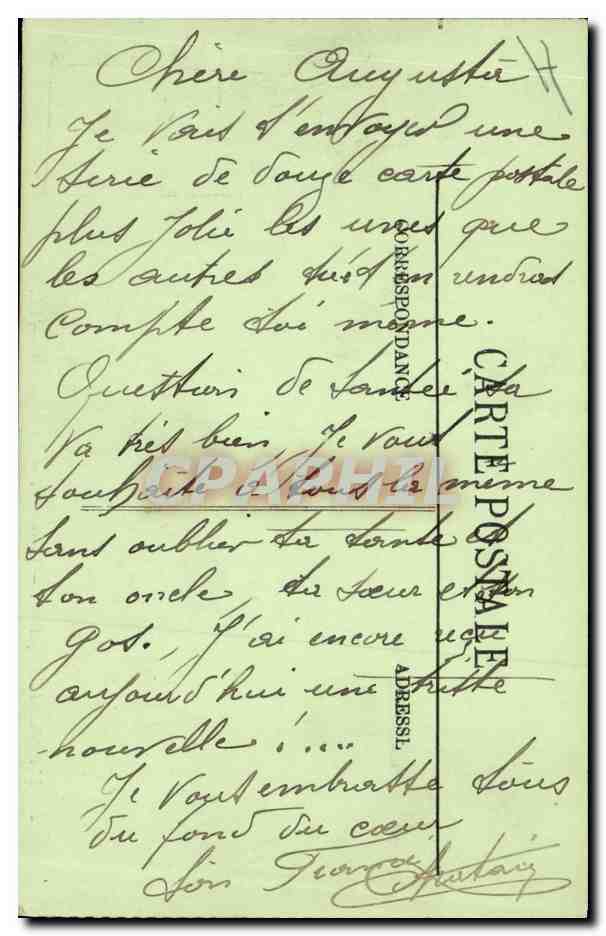 Chère Augusta
Je vais t'envoyer une
serie de douze carte postale
plus Jolie les unes que
les autres tu t'en rendras
Compte toi même.
Question de santé sa
va très bien, Je vous
souhaite à tous la même
sans oublier ta tante et
ton oncle, ta sœur et son
gos., J'ai encore reçu
aujourd'hui une tritte
nouvelle !....
Je vous embrasse tous
du fond du cœur
Ton
CORRESPONDANCE
CARTE POSTALE
ADRESSE
CPAPHIL